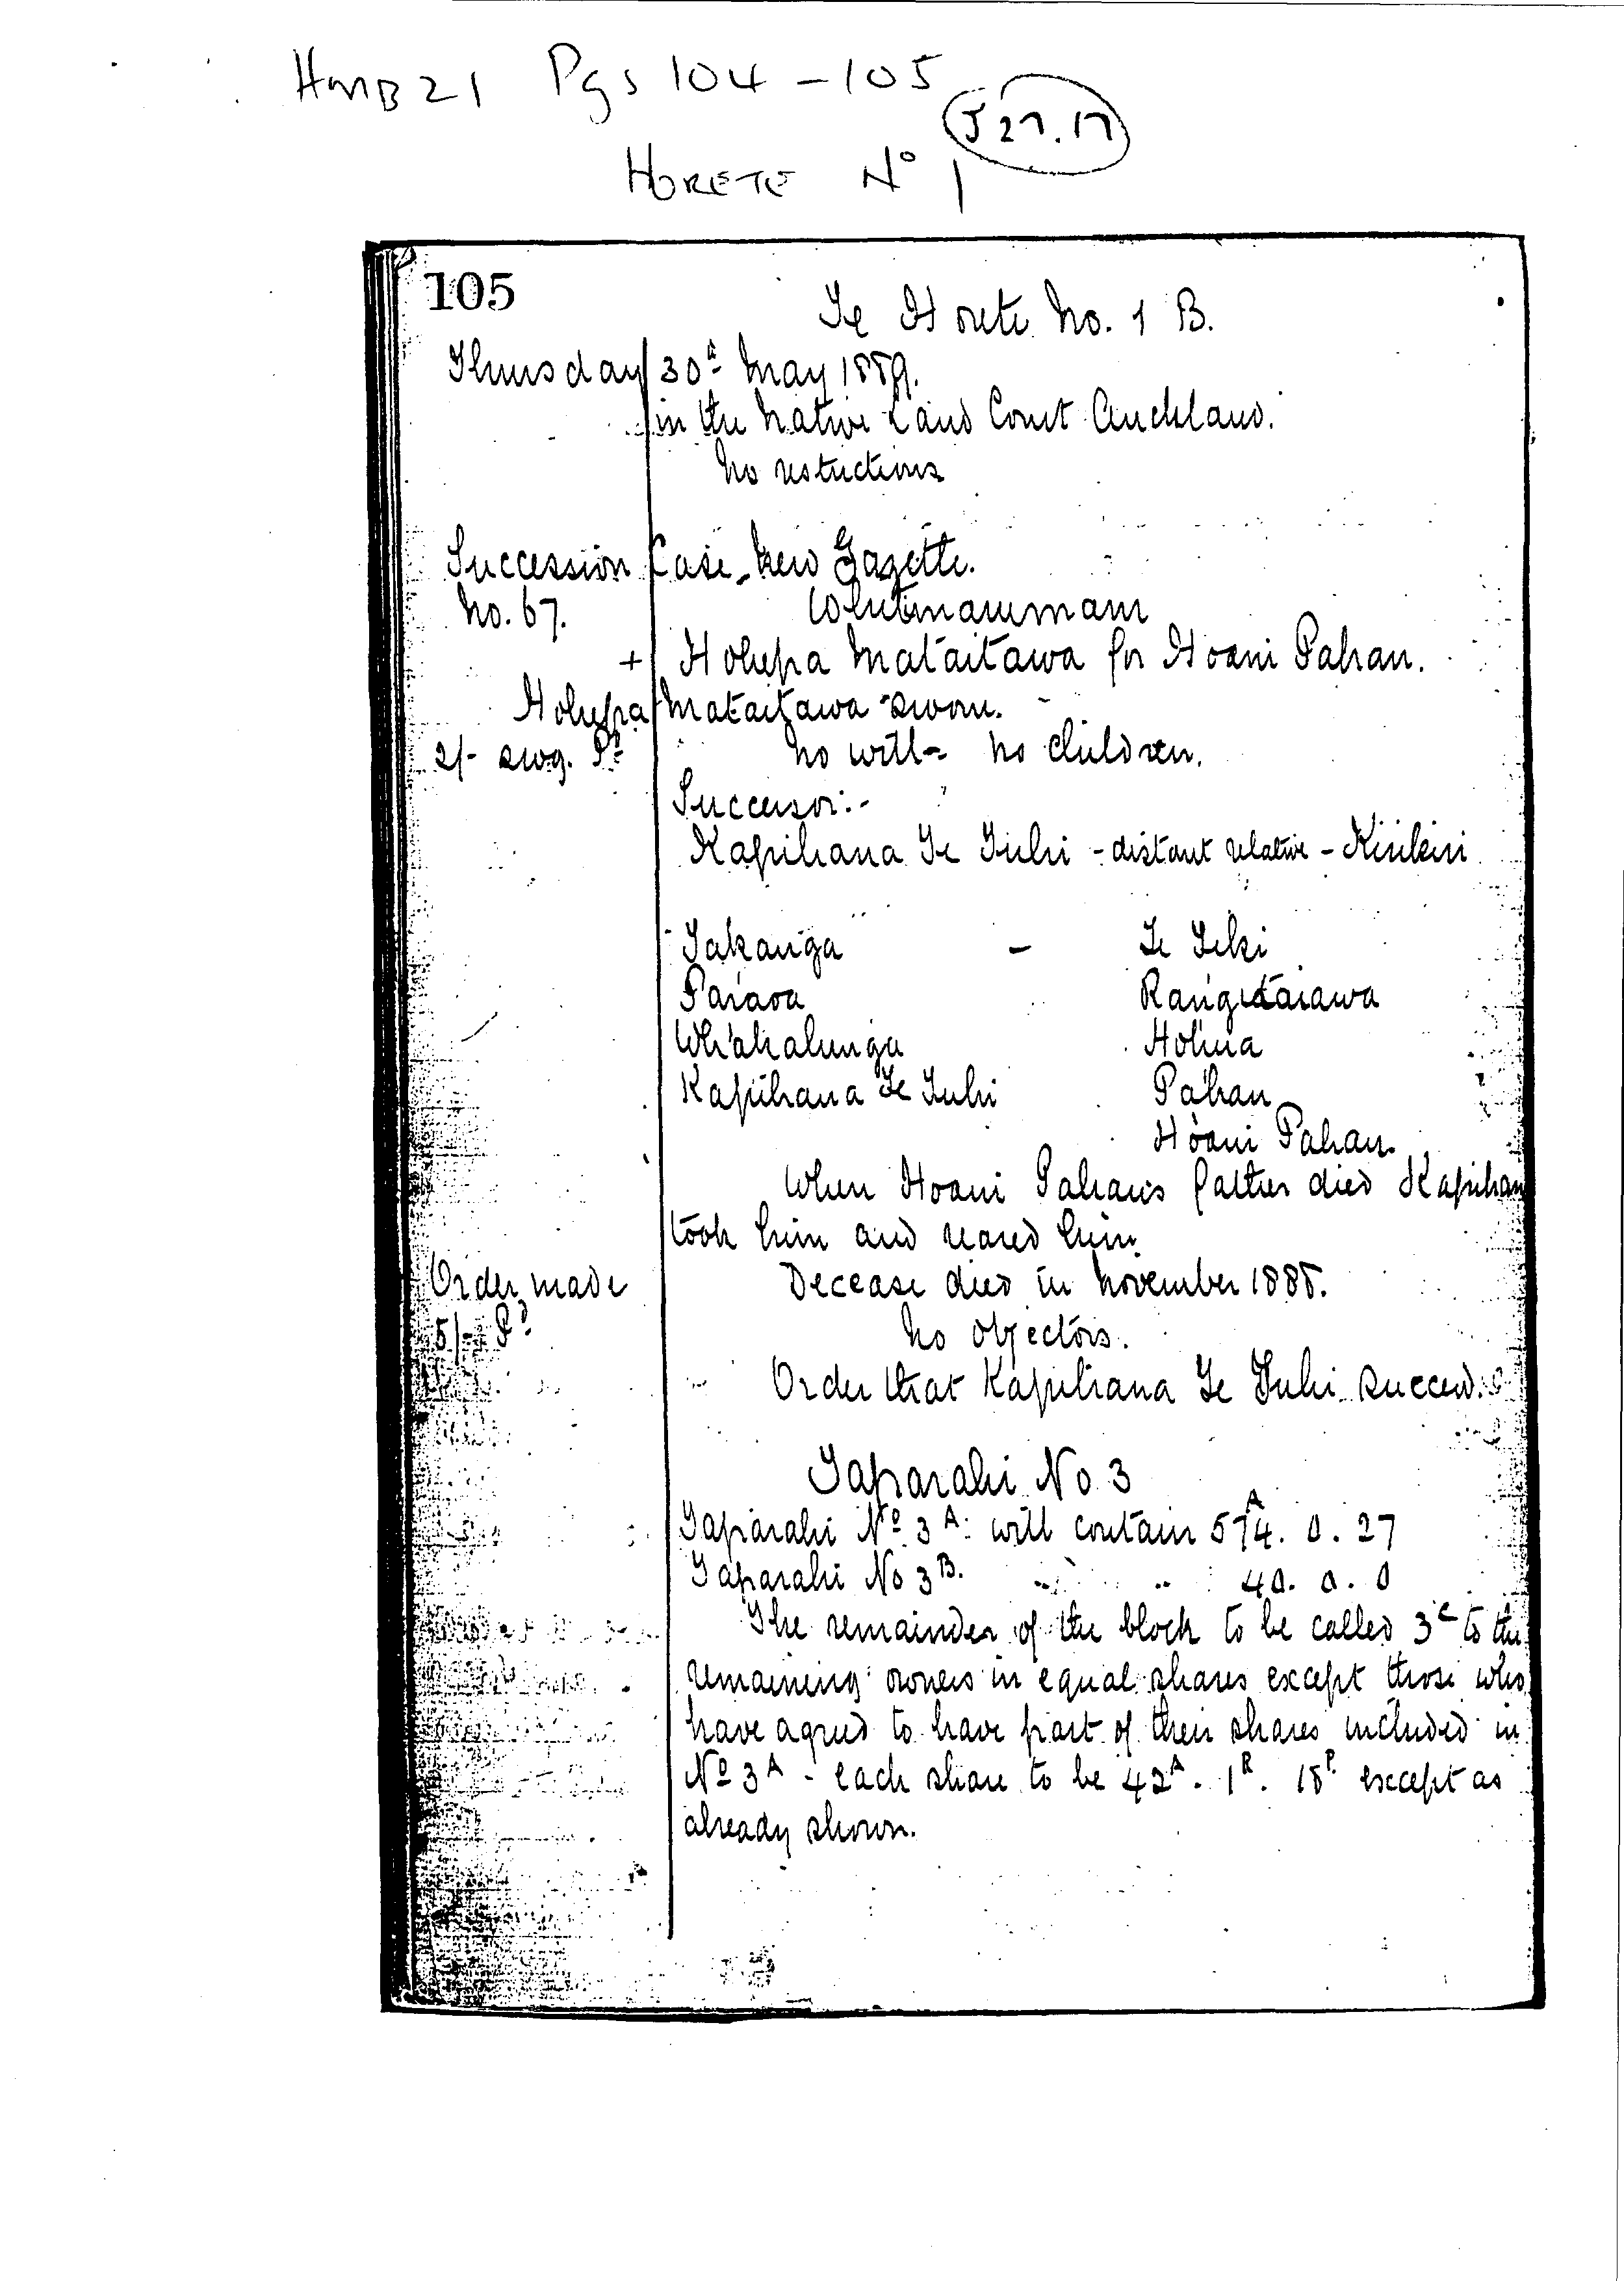 HMB 21 Pgs 104 - 105
J 27.17
HORETE No 1
105
Te Horete No. 1 B.
Thursday 30th May 1889.
in the Native Land Court Auckland.
No restrictions
Succession Case. New Gazette.
No. 67.
+ Hohepa Mataitawa for Hoani Pahau.
Hohepa Mataitawa sworn.
2/- swg. Pd No will - No children.
Successor:-
Kapihana Te Tuhi - distant relative - Kirikiri
Takanga - Te Teki
Paraoa Rangitaiawa
Kapihana Te Tuhi Pahau
Hoani Pahau
When Hoani Pahau's father died Kapihana
took him and reared him
Order made Decease died in November 1888.
5/- Pd No objectors.
Order that Kapihana Te Tuhi succeed.
Taparahi No 3
Taparahi No 3A: will contain 574A. 0. 27
Taparahi No 3B. " " 40. 0. 0
The remainder of the block to be called 3C to the
remaining owners in equal shares except those who
have agreed to have part of their shares included in
No 3A - each share to be 42A. 1R. 18P except as
already shown.